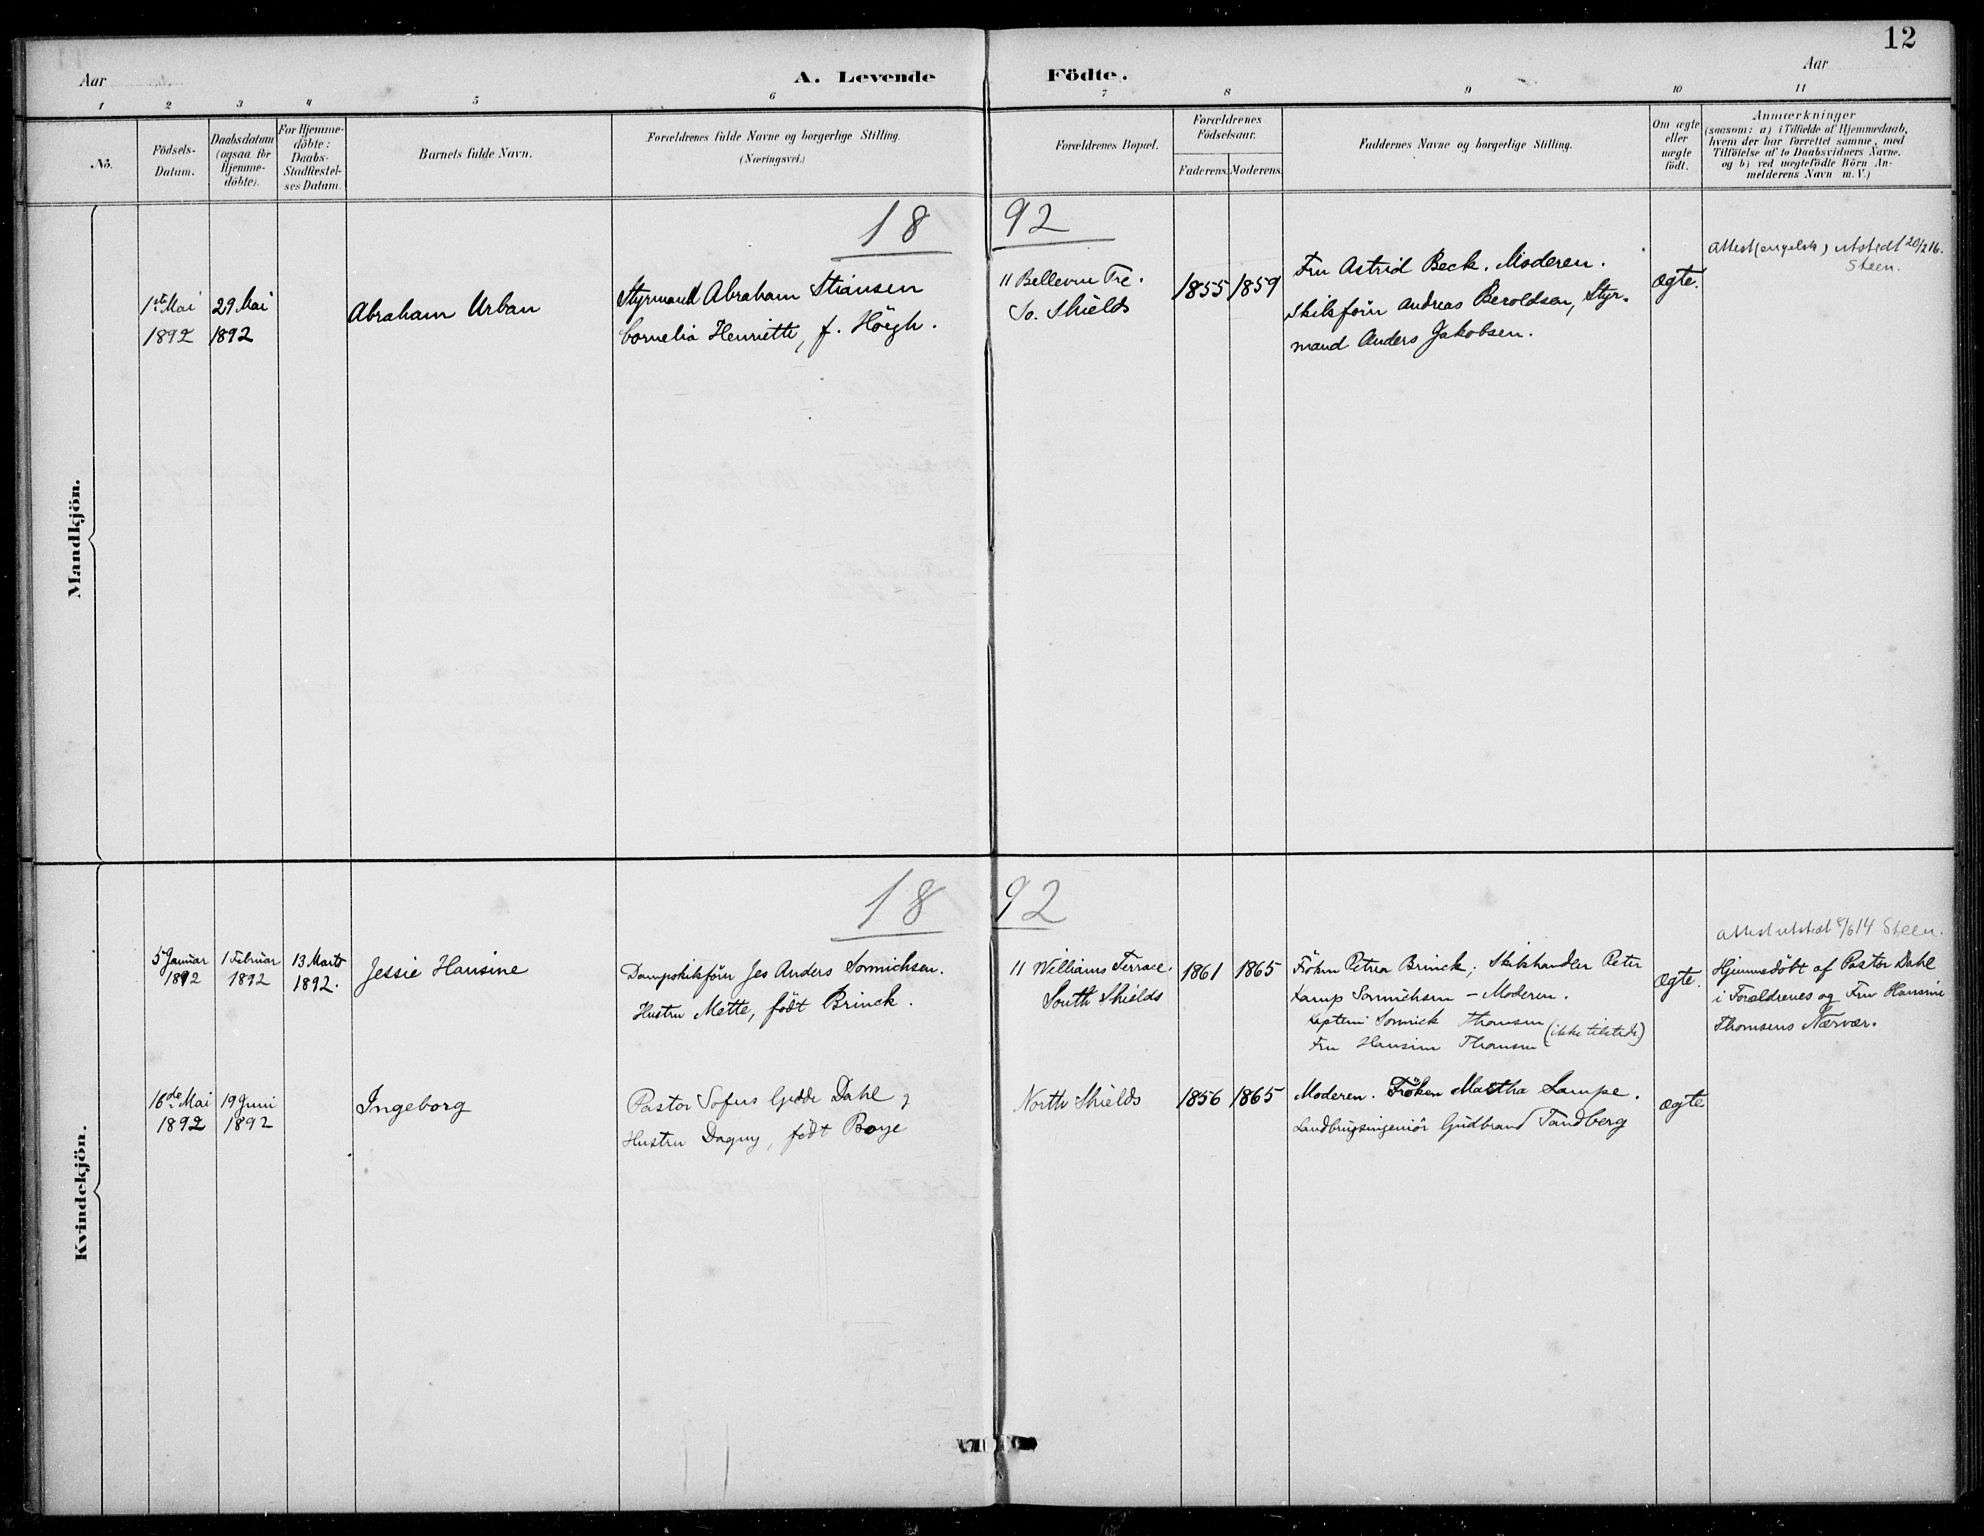 12
Aar
A. Levende Födte.
Aar
1 2 3 4 5 6 7 8 9 10 11
No.
Födsels-
Datum.
Daabsdatum
(ogsaa for
Hjemme-
döbte).
For Hjemme-
döbte:
Daabs-
Stadfæstel-
ses Datum.
Barnets fulde Navn.
Forældrenes fulde Navne og borgerlige Stilling.
(Næringsvei.)
Forældrenes Bopæl.
Forældrenes
Födselsaar.
Faderens. Moderens.
Faddernes Navne og borgerlige Stilling.
Om ægte
eller
uægte
födt.
Anmærkninger
(saasom: a) i Tilfælde af Hjemmedaab,
hvem der har forrettet samme, med
Tilföielse af to Daabsvidners Navne.
og b) ved uægtefödte Börn An-
melderens Navn m. V.)
Mandkjön.
1892
1ste Mai
1892
29 Mai
1892
Abraham Urban
Styrmand Abraham Stiansen
Cornelia Henriette, f. Höegh.
11 Bellevue Tre.
So. Shields
1855
1859
Fru Astrid Beck. Moderen.
Skibsförer Andreas Beroldsen, Styr-
mand Anders Jakobsen.
Ægte.
Attest (engelsk) utstedt 20/2 16.
Steen.
Kvindekjön.
1892
5 Januar
1892
1 Februar
1892
13 Marts
1892.
Jessie Hansine
Dampskibsförer Jes Anders Sonnichsen.
Hustru Mette, födt Brinck.
11 Williams Terrace.
South Shields
1861
1865
Fröken Petra Brinck; Skibshandler Peter
Kamp Sonnichsen – Moderen.
Kaptein Sonnick Thomsen
Fru Hansine Thomsen (ikke tilstede)
Ægte.
Attest utstedt 8/6 14 Steen.
Hjemmedöbt af Pastor Dahl
i Forældrenes og Fru Hansine
Thomsens Nærvær.
16de Mai
1892
19 Juni
1892
Ingeborg
Pastor Sofus Gedde Dahl og
Hustru Dagny, födt Boye
North Shields
1856
1865
Moderen. Fröken Martha Lampe.
Landbrugsingeniör Gudbrand Tandberg
ægte